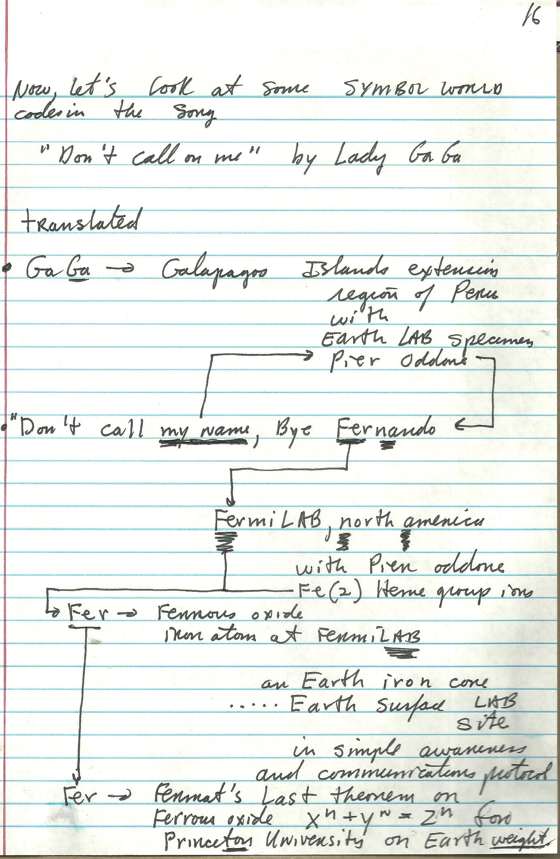 16
Now, let's look at some SYMBOL WORLD
codes in the song
"Don't call on me" by Lady Ga Ga
translated
• GaGa → Galapagos Islands extension
region of Peru
with
Earth LAB specimen
Pier Oddone
• "Don't call my name, Bye Fernando
FermiLAB, north america
with Pier oddone
Fe(2) Heme group ions
Fer → Ferrous oxide
iron atom at FermiLAB
an Earth iron core
..... Earth surface LAB
site
in simple awareness
and communications protocol
Fer → Fermat's Last theorem on
Ferrous oxide xⁿ + yⁿ = zⁿ for
Princeton University on Earth weight